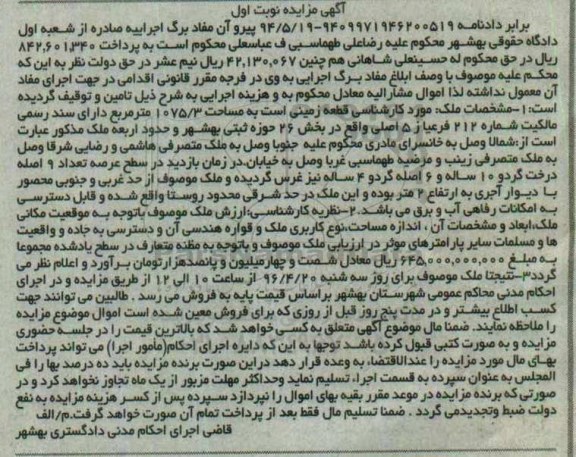 آگهی مزایده نوبت اول
برابر دادنامه ۹۴۰۹۹۷۱۹۴۶۲۰۰۵۱۹-۹۴/۵/۱۹ پیرو آن مفاد برگ اجراییه صادره از شعبه اول
دادگاه حقوقی بهشهر محکوم علیه رضاعلی طهماسبی ف عباسعلی محکوم است به پرداخت ۸۴۲,۶۰۱,۳۴۰
ریال در حق محکوم له حسینعلی شاهانی هم چنین ۴۲,۱۳۰,۰۶۷ ریال نیم عشر در حق دولت نظر به این که
محکم علیه موصوف با وصف ابلاغ مفاد برگ اجرایی به وی در فرجه مقرر قانونی اقدامی در جهت اجرای مفاد
آن معمول نداشته لذا اموال مشارالیه معادل محکوم به و هزینه اجرایی به شرح ذیل تامین و توقیف گردیده
است:۱-مشخصات ملک: مورد کارشناسی قطعه زمینی است به مساحت ۱۰۷۵/۳ مترمربع دارای سند رسمی
مالکیت شماره ۲۱۲ فرعیاز ۵ اصلی واقع در بخش ۲۶ حوزه ثبتی بهشهر و حدود اربعه ملک مذکور عبارت
است از:شمالا وصل به خانسرای مادری محکوم علیه جنوبا وصل به ملک متصرفی هاشمی و رضایی شرقا وصل
به ملک متصرفی زینب و مرضیه طهماسبی غربا وصل به خیابان.در زمان بازدید در سطح عرصه تعداد ۹ اصله
درخت گردو ۱۰ ساله و ۶ اصله گردو ۴ ساله نیز غرس گردیده و ملک موصوف از حد غربی و جنوبی محصور
با دیوار آجری به ارتفاع ۲ متر بوده و این ملک در حد شرقی محدود روستا واقع شده و قابل دسترسی
به امکانات رفاهی آب و برق می باشد.۲-نظریه کارشناسی:ارزش ملک موصوف باتوجه به موقعیت مکانی
ملک،ابعاد و مشخصات آن ، اندازه مساحت،نوع کاربری ملک و قواره هندسی آن و دسترسی به جاده و واقعیت
ها و مسلمات سایر پارامترهای موثر در ارزیابی ملک موصوف و باتوجه به مظنه متعارف در سطح یادشده مجموعا
به مبلغ ۶۴۵,۰۰۰,۰۰۰,۰۰۰ ریال معادل شصت و چهارمیلیون و پانصدهزارتومان برآورد و اعلام نظر می
گردد۳-نتیجتا ملک موصوف برای روز سه شنبه ۹۶/۴/۲۰ از ساعت ۱۰ الی ۱۲ از طریق مزایده و در اجرای
احکام مدنی محاکم عمومی شهرستان بهشهر براساس قیمت پایه به فروش می رسد . طالبین می توانند جهت
کسب اطلاع بیشتر و در مدت پنج روز قبل از روزی که برای فروش معین شده است اموال موضوع مزایده
را ملاحظه نمایند. ضمنا مال موضوع آگهی متعلق به کسی خواهد شد که بالاترین قیمت را در جلسه حضوری
مزایده و به صورت کتبی قبول کرده باشد توجها به این که دایره اجرای احکام(مأمور اجرا) می تواند پرداخت
بهای مال مورد مزایده را عندالاقتضاء، به وعده قرار دهد دراین صورت برنده مزایده باید ده درصد بها را فی
المجلس به عنوان سپرده به قسمت اجراء، تسلیم نماید وحداکثر مهلت مزبور از یک ماه تجاوز نخواهد کرد و در
صورتی که برنده مزایده در موعد مقرر بقیه بهای اموال را نپردازد سپرده پس از کسر هزینه مزایده به نفع
دولت ضبط وتجدیدمی گردد . ضمنا تسلیم مال فقط بعد از پرداخت تمام آن صورت خواهد گرفت.م/الف
قاضی اجرای احکام مدنی دادگستری بهشهر